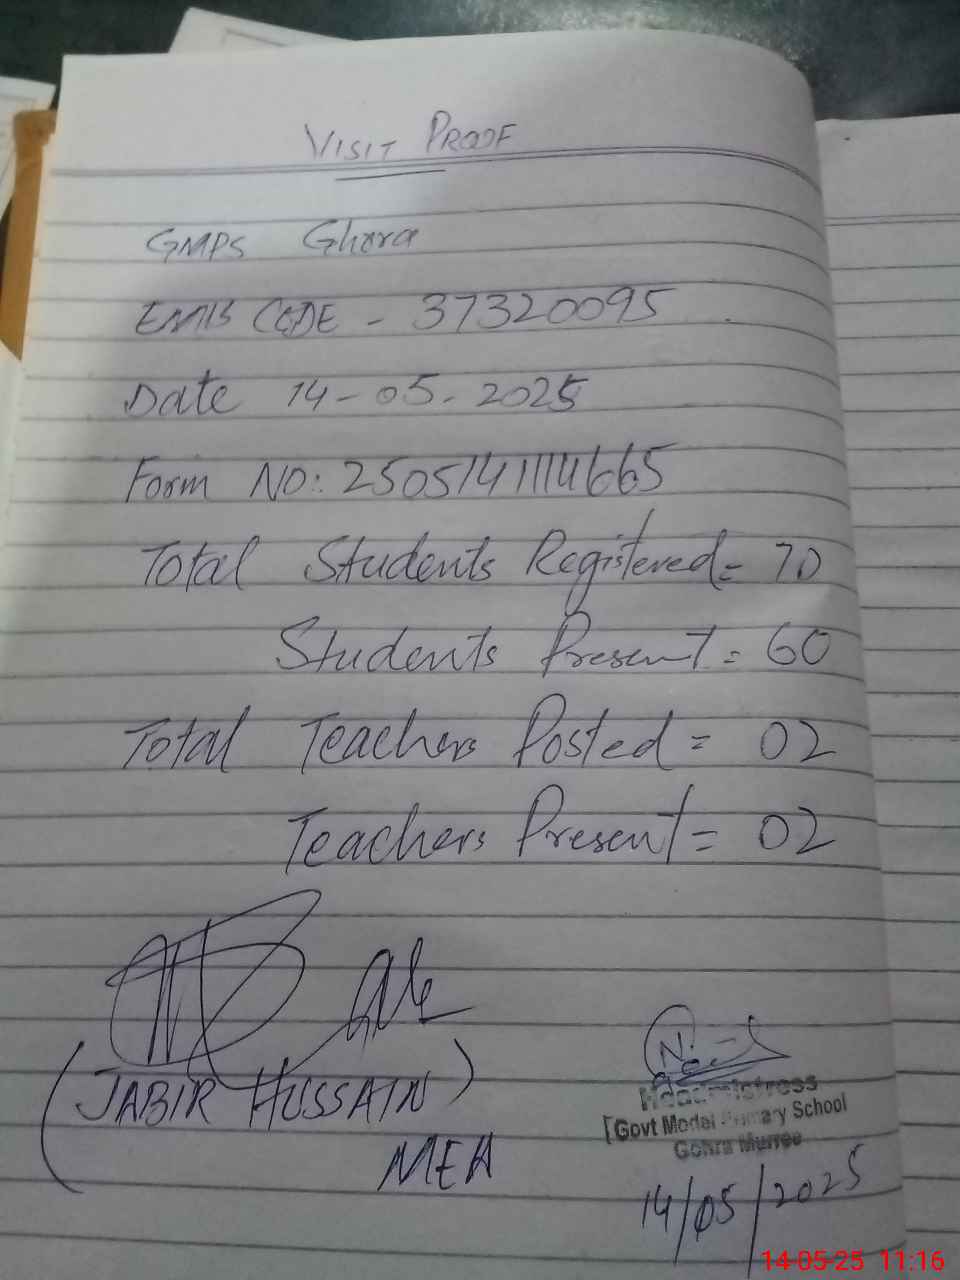 VISIT PROOF
GMPS Ghora
EMIS CODE - 37320095
Date 14-05-2025
Form NO: 2505141114665
Total Students Registered = 70
Students Present = 60
Total Teachers Posted = 02
Teachers Present = 02
(JABIR HUSSAIN)
MEA
Headmistress
Govt Model Primary School
Gohra Murree
14/05/2025
14-05-25 11:16